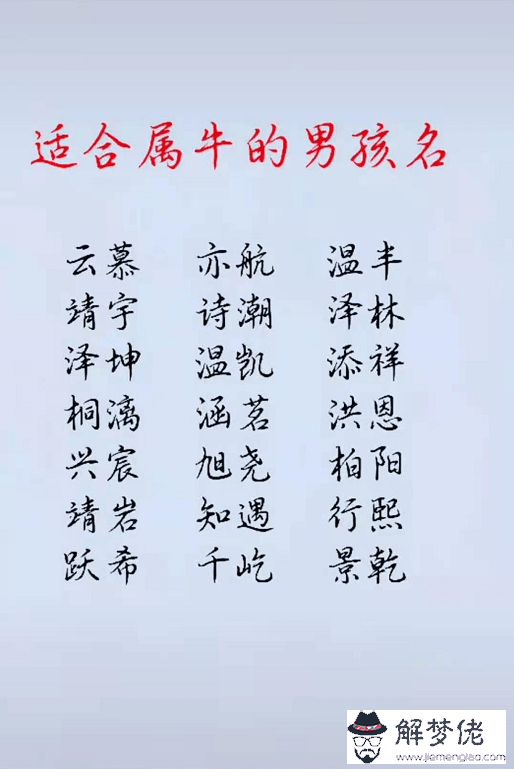 适合属牛的男孩名
云慕 亦航 温半
靖宇 诗潮 泽林
泽坤 温凯 添祥
桐漓 涵茗 洪恩
兴宸 旭尧 柏阳
靖岩 知遇 行熙
跃希 千屹 景乾
解梦佬
www.jiemenglao.com